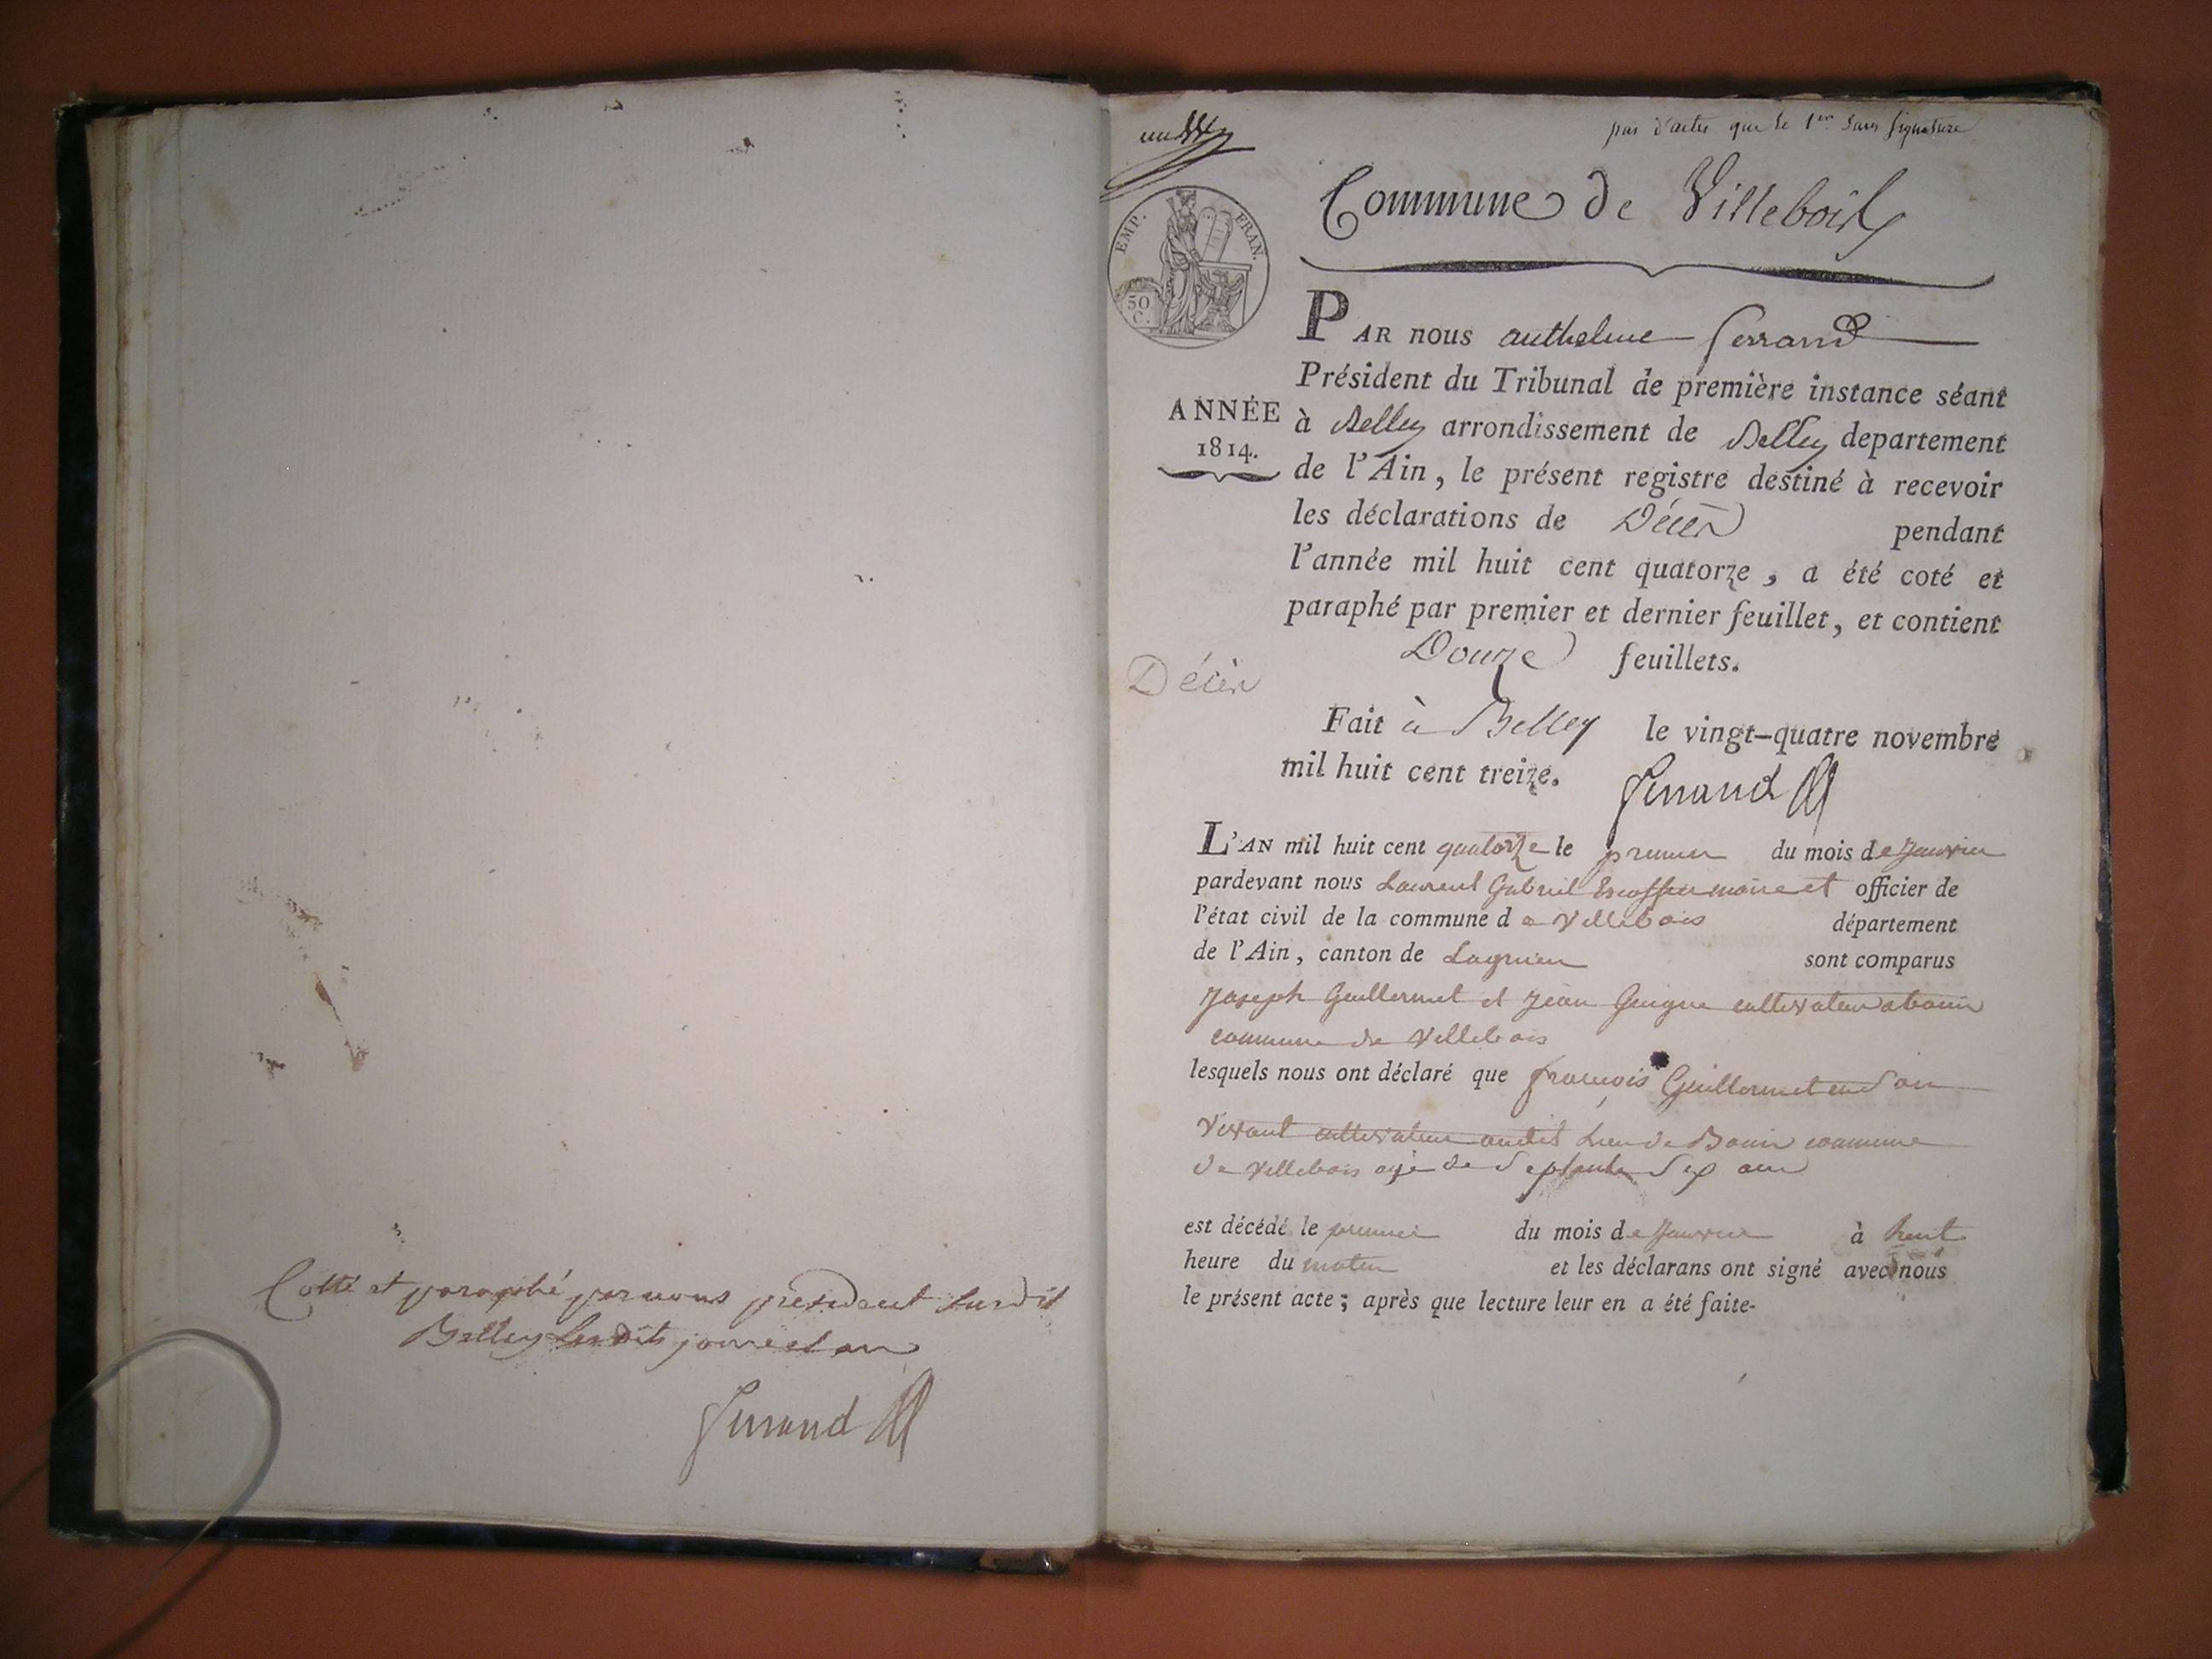 Cotté et paraphé par nous président susdit
Belley lesdits jour et an
Ferrand
un
pas d'actes que le 1er sans signature
Commune de Villebois
EMP. FRAN.
50 C.
PAR nous anthelme ferrand
Président du Tribunal de première instance séant
ANNÉE
1814.
à Belley arrondissement de Belley departement
de l'Ain, le présent registre destiné à recevoir
les déclarations de Décès pendant
l'année mil huit cent quatorze, a été coté et
paraphé par premier et dernier feuillet, et contient
Douze feuillets.
Décès
Fait à Belley le vingt-quatre novembre
mil huit cent treize. Ferrand
L'AN mil huit cent quatorze le premier du mois de Janvier
pardevant nous Laurent Gabriel Escoffier maire et officier de
l'état civil de la commune de Villebois département
de l'Ain, canton de Lagnieu sont comparus
Joseph Guillermet et Jean Guigue cultivateur a bouis
commune de Villebois
lesquels nous ont déclaré que françois Guillermet en son
vivant cultivateur audit lieu de Bouis commune
de Villebois agé de septante six ans
est décédé le premier du mois de Janvier à huit
heure du matin et les déclarans ont signé avec nous
le présent acte; après que lecture leur en a été faite-